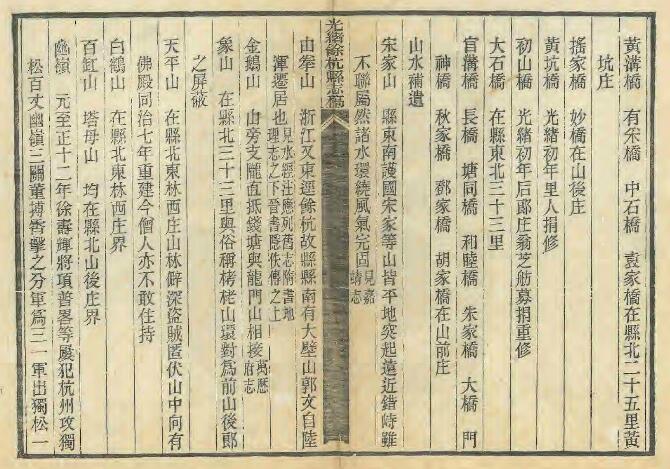 黃溝橋 有米橋 中石橋 袁家橋在縣北二十五里黃
坑庄
搖家橋 妙橋在山後庄
黃坑橋 光緒初年里人捐修
初山橋 光緒初年后郎庄翁芝舫募捐重修
大石橋 在縣東北三十三里
盲溝橋 長橋 塘同橋 和睦橋 朱家橋 大橋 門
神橋 秋家橋 鄧家橋 胡家橋在山前庄
山水補遺
宋家山 縣東南護國宋家等山皆平地突起遠近錯峙雖
不聯屬然諸水環繞風氣完固見嘉
靖志
光緒餘杭縣志稿
由拳山 浙江又東逕餘杭故縣縣南有大壁山郭文自陸
渾遷居也見水經注應列舊志附書地
理志之下晉書隱佚傳之上
金鵝山 山旁支隴直抵錢塘與龍門山相接萬歷
府志
象山 在縣北三十三里與俗稱栲栳山環對爲前山後郎
之屏蔽
天平山 在縣北東林西庄山林僻深盜賊匿伏山中向有
佛殿同治七年重建今僧人亦不敢住持
白鶴山 在縣北東林西庄界
百缸山 塔母山 均在縣北山後庄界
幽嶺 元至正十二年徐壽輝將項普畧等屡犯杭州攻獨
松百丈幽嶺三關董摶霄擊之分軍爲三一軍出獨松一